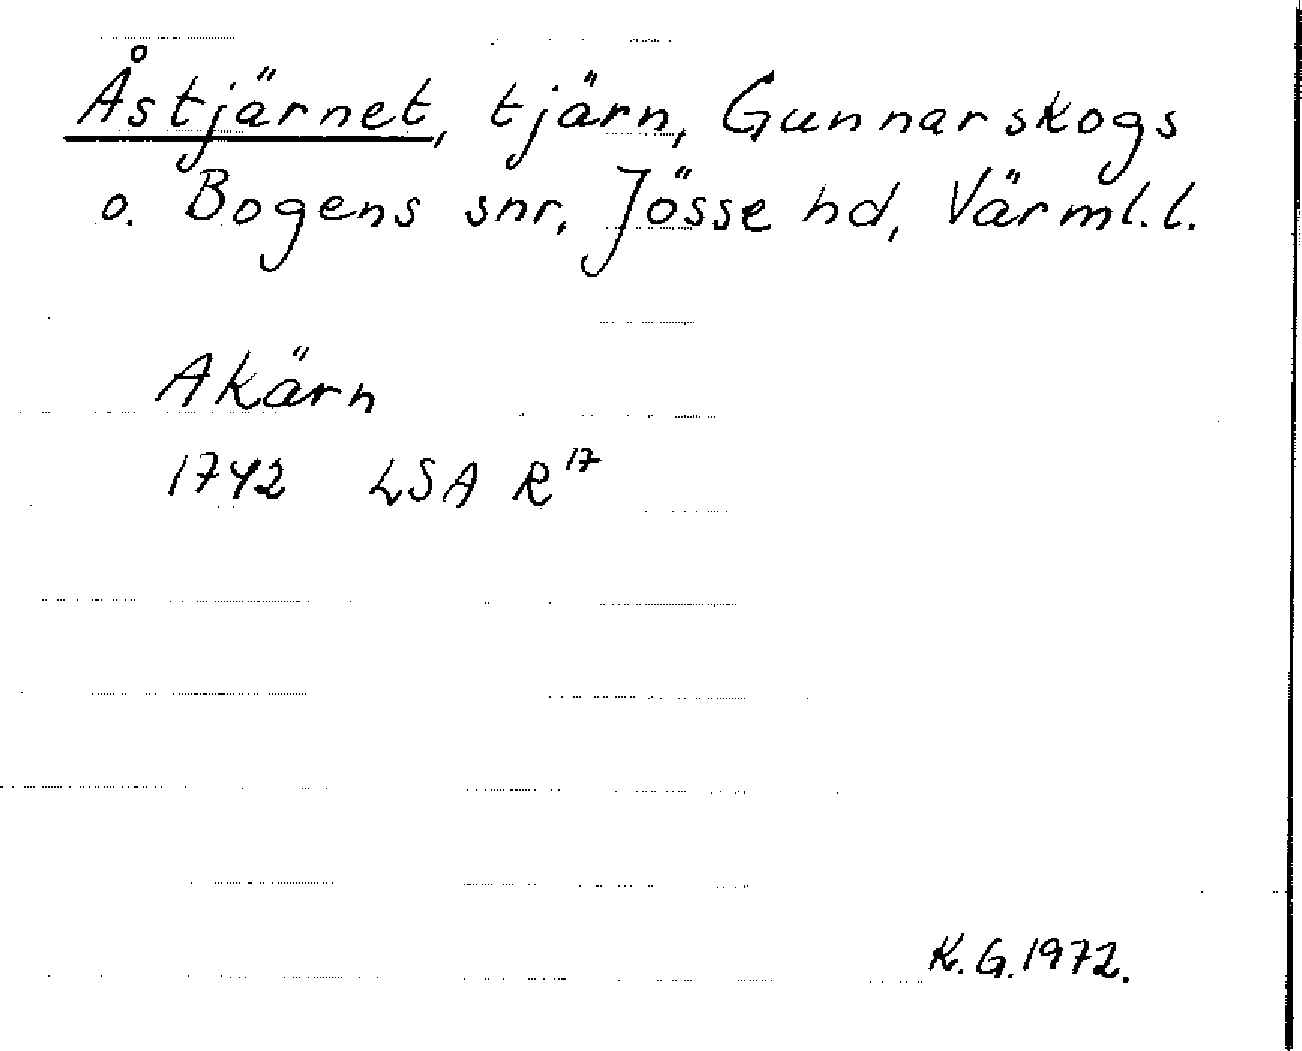 Åstjärnet, tjärn, Gunnarskogs
o. Bogens snr, Jösse hd, Värml.l.
Akärn
1742 LSA R 17
K.G. 1972.